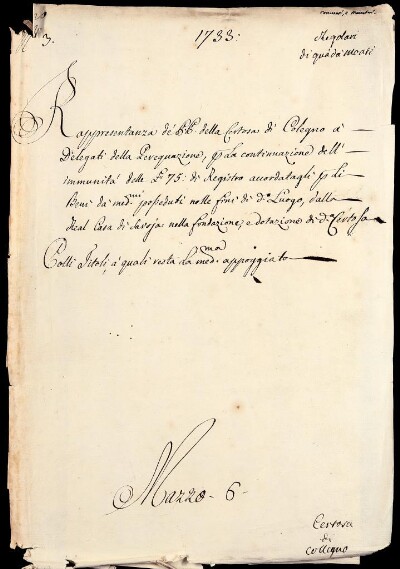 3.
1733:
Regolari
di quà da monti
Rappresentanza de' PP. della Certosa di Colegno a'
Delegati della Perequazione, p la continuazione dell'
immunità delle L.e 75: di Registro accordatagli p li
Beni da med.mi posseduti nelle fini di d.o Luogo, dalla
Real Casa di Savoja nella fondazione, e dotazione di d.a Certosa
Colli Titoli, a' quali resta la med.ma appoggiato
Mazzo - 6 -
Certosa
di
Collegno